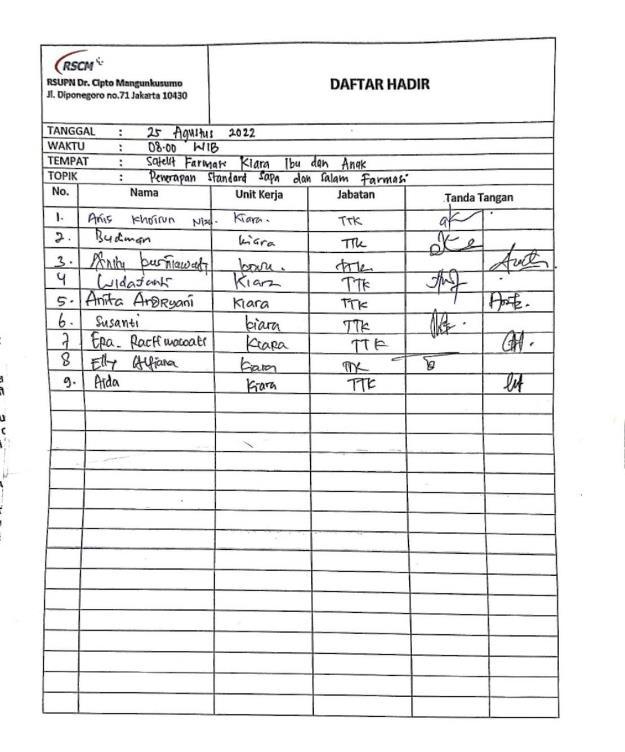 RSCM
RSUPN Dr. Cipto Mangunkusumo
Jl. Diponegoro no.71 Jakarta 10430
DAFTAR HADIR
TANGGAL : 25 Agustus 2022
WAKTU : 08.00 WIB
TEMPAT : Satelit Farmasi Kiara Ibu dan Anak
TOPIK : Penerapan Standard Sapa dan Salam Farmasi
No. Nama Unit Kerja Jabatan Tanda Tangan
1. Anis Khoirun Kiara. TTK
2. Budiman kiara TTK
3. TTK
4 Widajanti Kiara TTK
5. Anita Andryani Kiara TTK
6. Susanti kiara TTK
7 Epa. Kiara TTK
8 Elly Alfiana Kiara TTK
9. Aida Kiara TTK